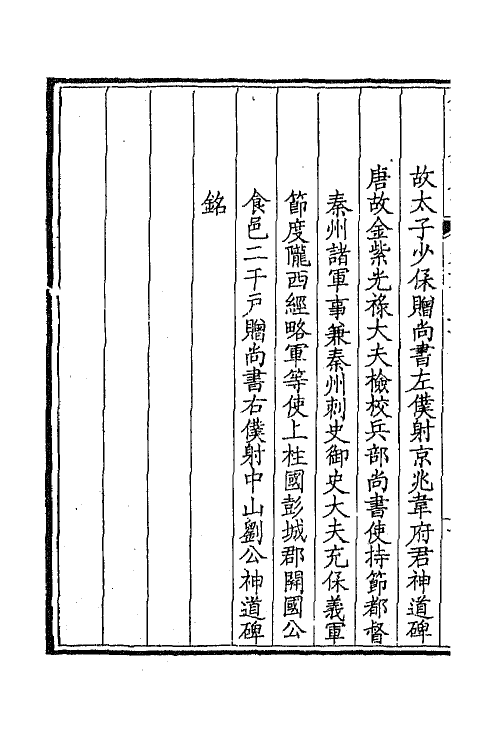 故太子少保贈尚書左僕射京兆韋府君神道碑
唐故金紫光祿大夫檢校兵部尚書使持節都督
秦州諸軍事兼秦州刺史御史大夫充保義軍
節度隴西經略軍等使上柱國彭城郡開國公
食邑二千戶贈尚書右僕射中山劉公神道碑
銘